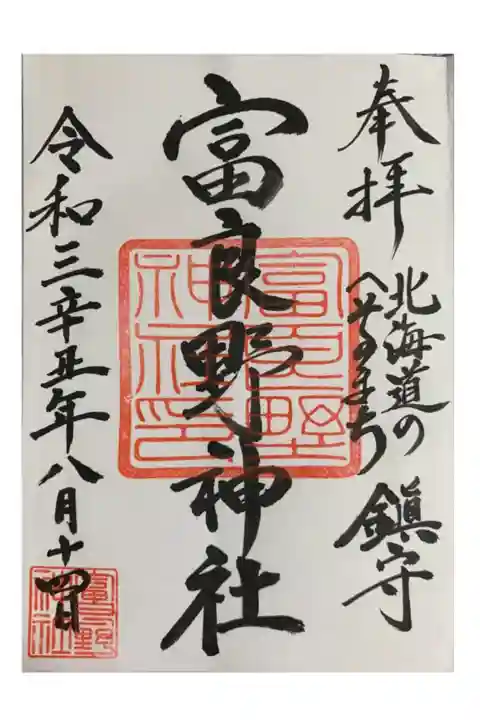 奉拝
北海道の
へそのまち
鎮守
富良野神社
富良野神社印
令和三辛丑年八月十四日
富良野神社